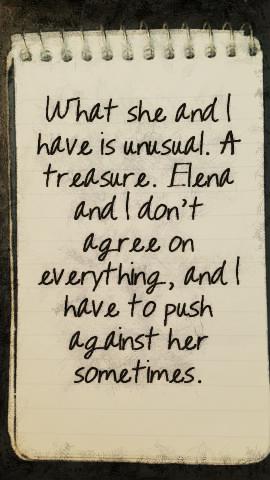 What she and I
have is unusual. A
treasure. Elena
and I don't
agree on
everything, and I
have to push
against her
sometimes.